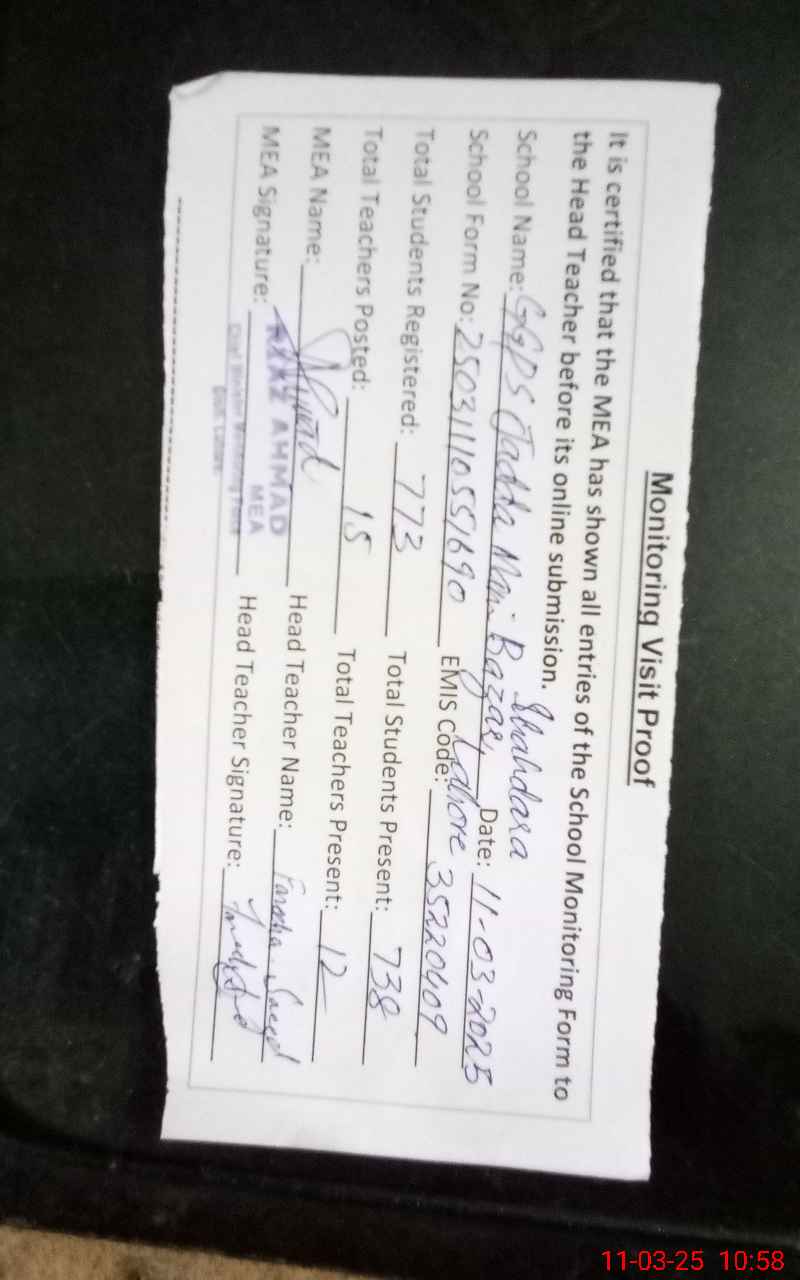 Monitoring Visit Proof
It is certified that the MEA has shown all entries of the School Monitoring Form to
the Head Teacher before its online submission.
Shahdara
School Name: GGPS Jadda Main Bazar, Lahore Date: 11-03-2025
School Form No: EMIS Code: 35220409
Total Students Registered: 773 Total Students Present: 738
Total Teachers Posted: 15 Total Teachers Present: 12
MEA Name: Head Teacher Name: Saeed
MEA Signature: Head Teacher Signature:
AHMAD
MEA
11-03-25 10:58